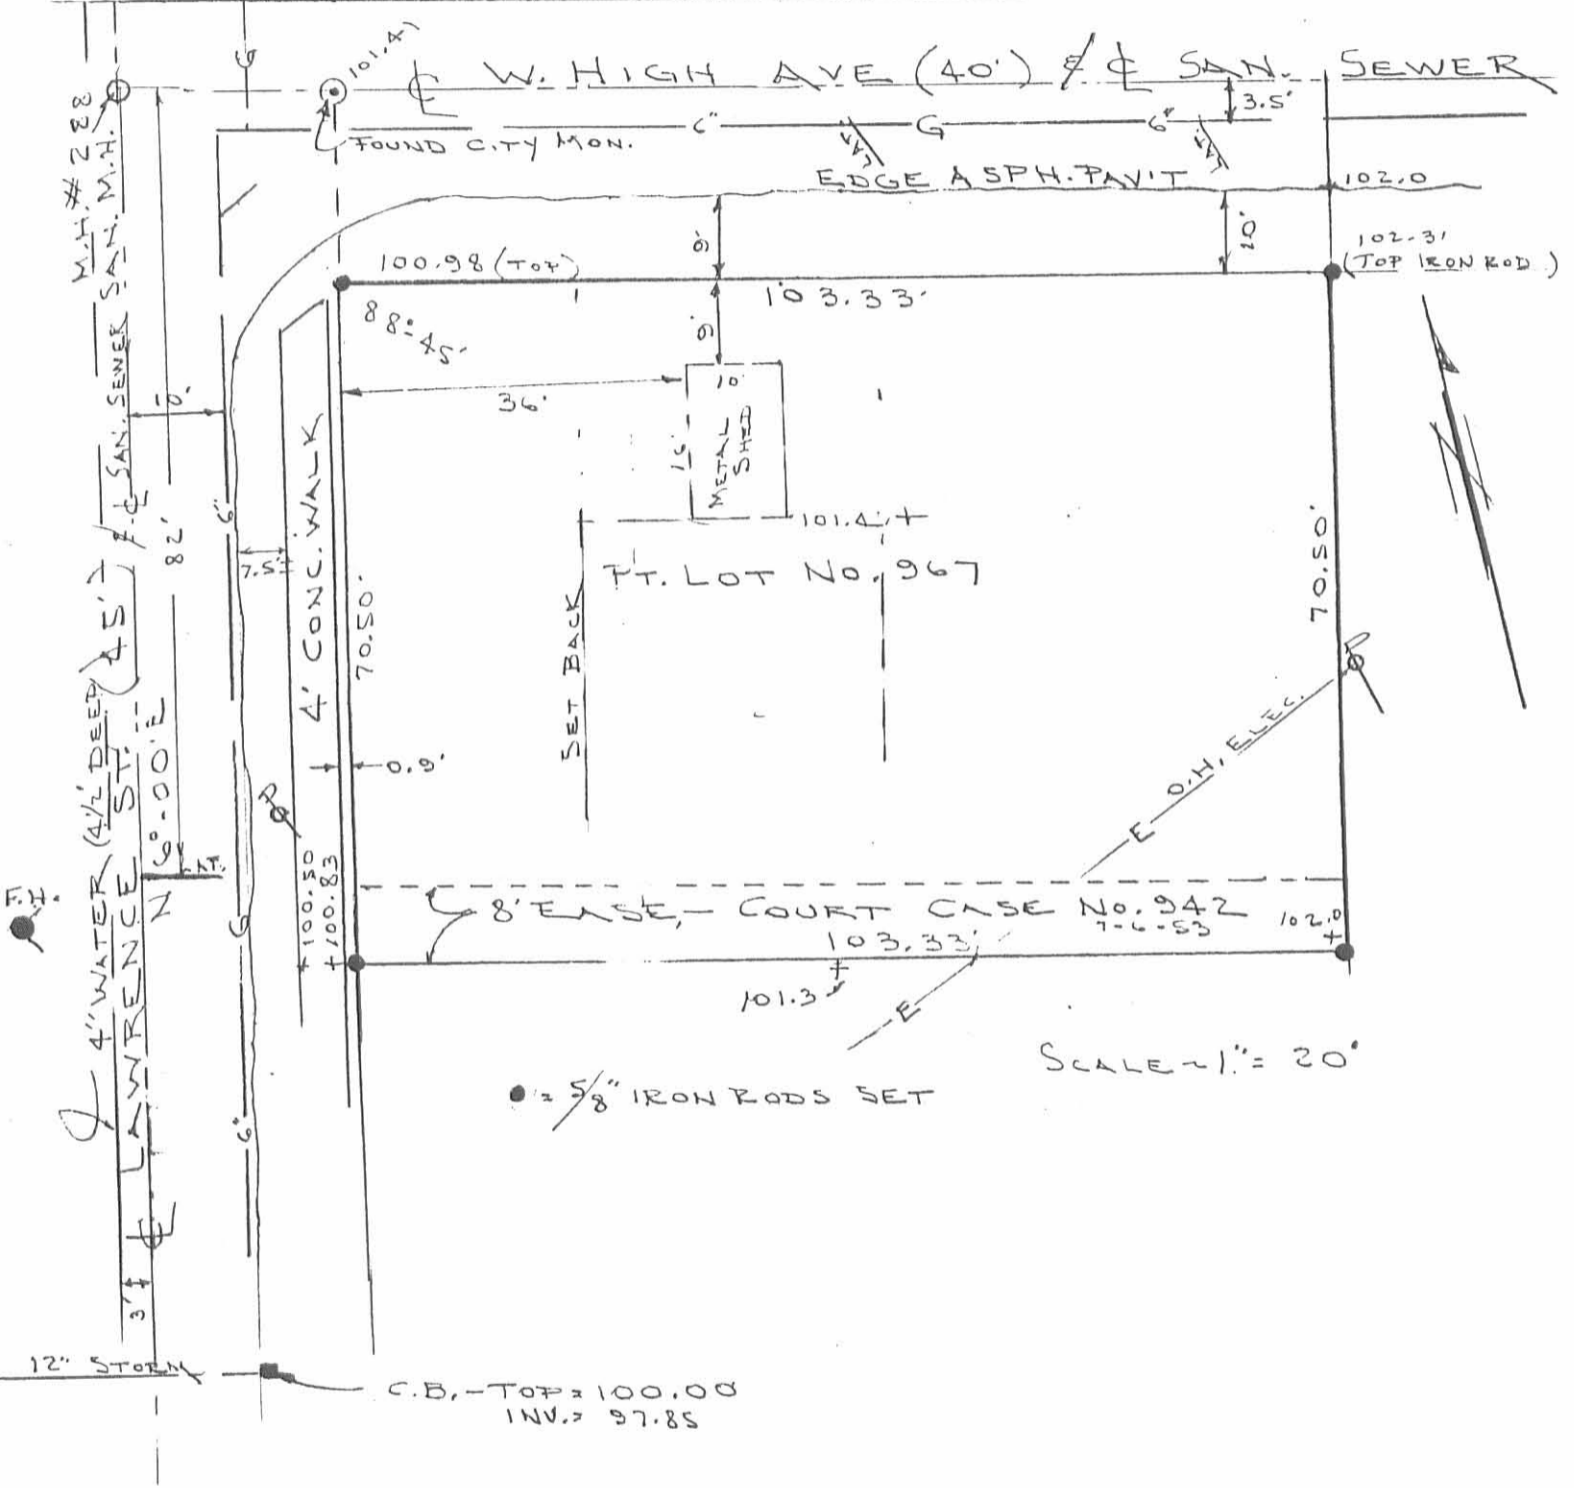 101.47
℄ W. HIGH AVE (40') & ℄ SAN. SEWER
3.5'
FOUND CITY MON.
6" G 6"
EDGE ASPH. PAV'T
102.0
M.H. # 288
SAN. M.H.
100.98 (TOP)
9'
10'
102.31
(TOP IRON ROD)
103.33'
88°-45'
9'
36'
10'
16'
METAL
SHED
10'
82'
6"
7.5'±
4' CONC. WALK
70.50'
SET BACK
101.4 +
PT. LOT NO. 967
70.50'
4" WATER (4½' DEEP)
LAWRENCE ST. (45') & ℄ SAN. SEWER
N 6°-00' E
P
0.9'
P
O.H. ELEC.
E
F.H.
G
+100.50
+100.83
8' EASE, - COURT CASE NO. 942
7-6-53
102.0
+
103.33'
+
101.3
E
SCALE ~ 1" = 20'
● = 5/8" IRON RODS SET
6"
℄
3'±
12" STORM
C.B. - TOP = 100.00
INV. = 97.85
N